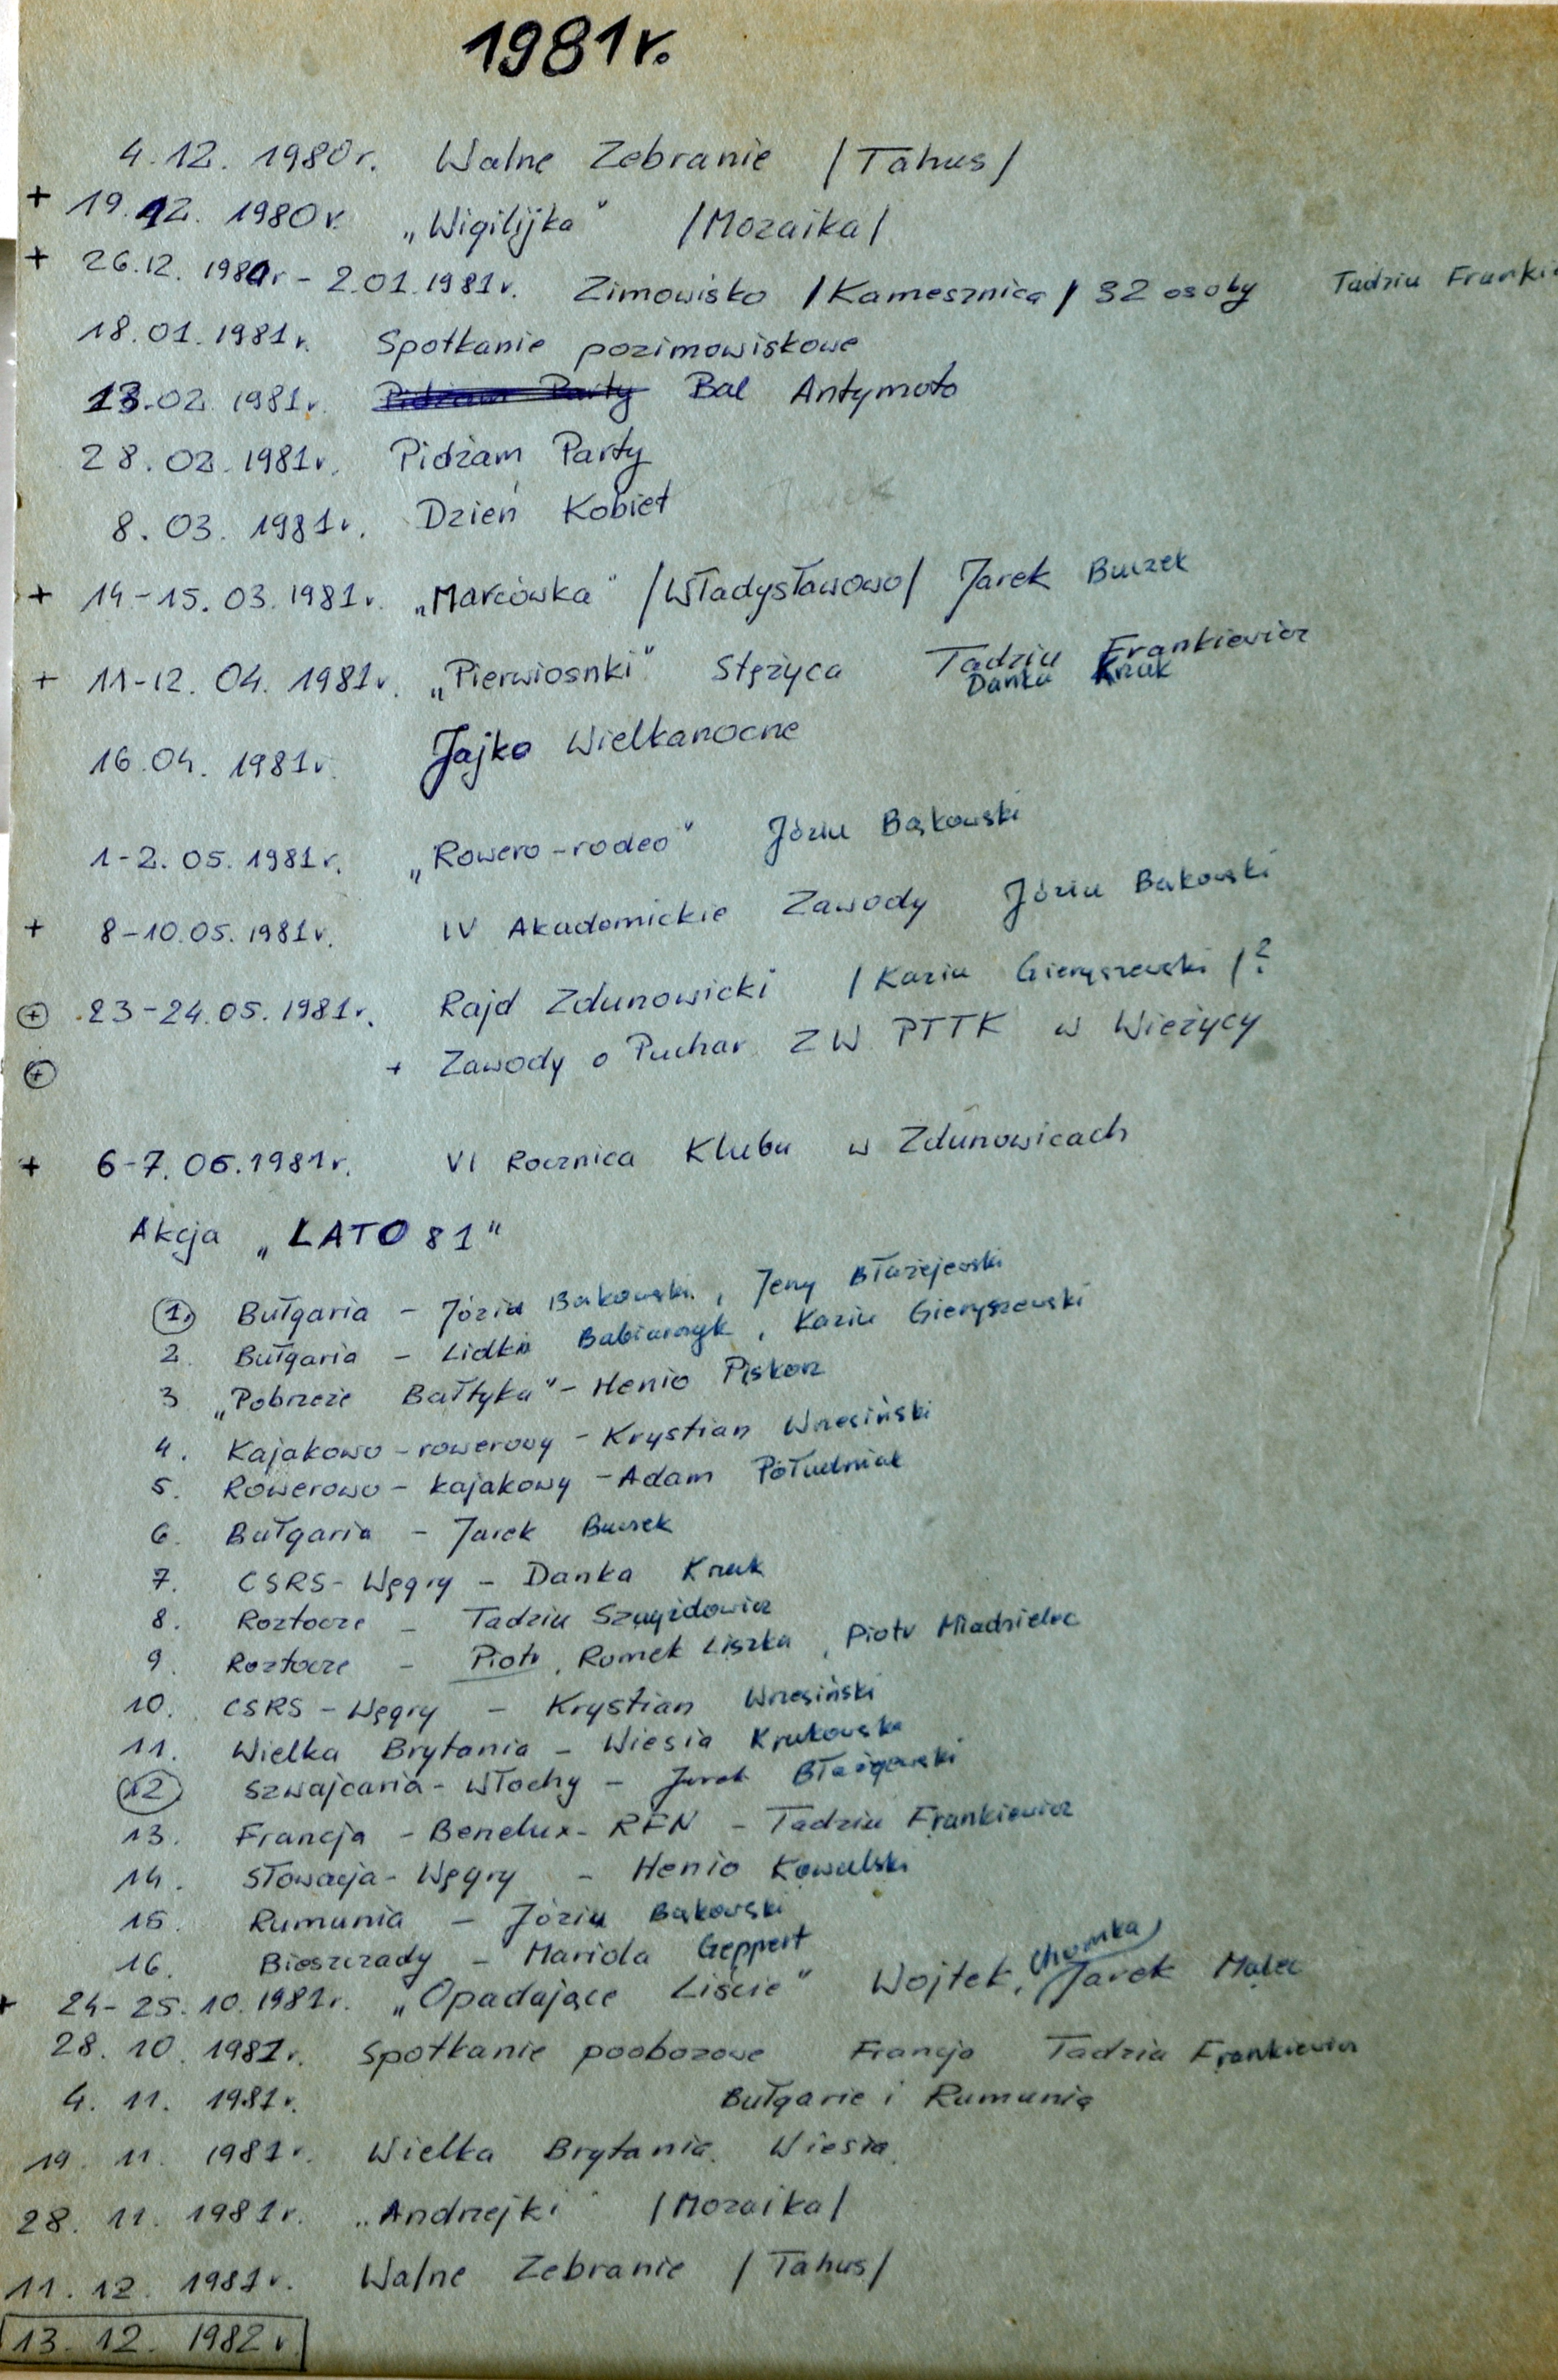 1981r.
4.12. 1980r. Walne Zebranie /Tahus/
+ 19.12. 1980r. „Wigilijka" /Mozaika/
+ 26.12. 1980r - 2.01.1981r. Zimowisko /Kamesznica/ 32 osoby Tadziu Franki
18.01.1981r. Spotkanie pozimowiskowe
13.02 1981r. Pidżam Party Bal Antymoto
28.02.1981r. Pidżam Party
8.03.1981r. Dzień Kobiet Jarek
+ 14-15.03.1981r. „Marcówka" /Władysławowo/ Jarek Buczek
+ 11-12.04.1981r. „Pierwiosnki" Stężyca Tadziu Frankiewicz
Danka Kruk
16.04.1981r. Jajko Wielkanocne
1-2.05.1981r. „Rowero-rodeo" Józiu Bąkowski
+ 8-10.05.1981r. IV Akademickie Zawody Józiu Bąkowski
+ 23-24.05.1981r. Rajd Zdunowicki /Kaziu Gieryszewski/?
+ + Zawody o Puchar ZW PTTK w Wieżycy
+ 6-7.06.1981r. VI Rocznica Klubu w Zdunowicach
Akcja „LATO 81"
1. Bułgaria - Józiu Bakowski, Jerzy Błażejewski
2. Bułgaria - Lidka Babiarczyk, Kaziu Gieryszewski
3 „Pobrzeże Bałtyku" - Henio Piskorz
4. Kajakowo-rowerowy - Krystian Wrzesiński
5. Rowerowo-kajakowy - Adam Południak
6. Bułgaria - Jarek Buczek
7. CSRS-Węgry - Danka Kruk
8. Roztocze - Tadziu Szugzdowicz
9. Roztocze - Piotr, Romek Liszka, Piotr Miadzielec
10. CSRS-Węgry - Krystian Wrzesiński
11. Wielka Brytania - Wiesia Krukowska
12 Szwajcaria-Włochy - Jurek
13. Francja - Benelux - RFN - Tadziu Frankiewicz
14. Słowacja-Węgry - Henio Kowalski
15. Rumunia - Józiu Bąkowski
16. Bieszczady - Mariola Geppert
+ 24-25.10.1981r. „Opadające Liście" Wojtek, Chomka, Jarek Malec
28.10.1981r. Spotkanie poobozowe Francja Tadzia Frankiewicz
4.11.1981r. Bułgarie i Rumunia
19.11.1981r. Wielka Brytania. Wiesia.
28.11.1981r. „Andrzejki" /Mozaika/
11.12.1981r. Walne Zebranie /Tahus/
13.12.1982r